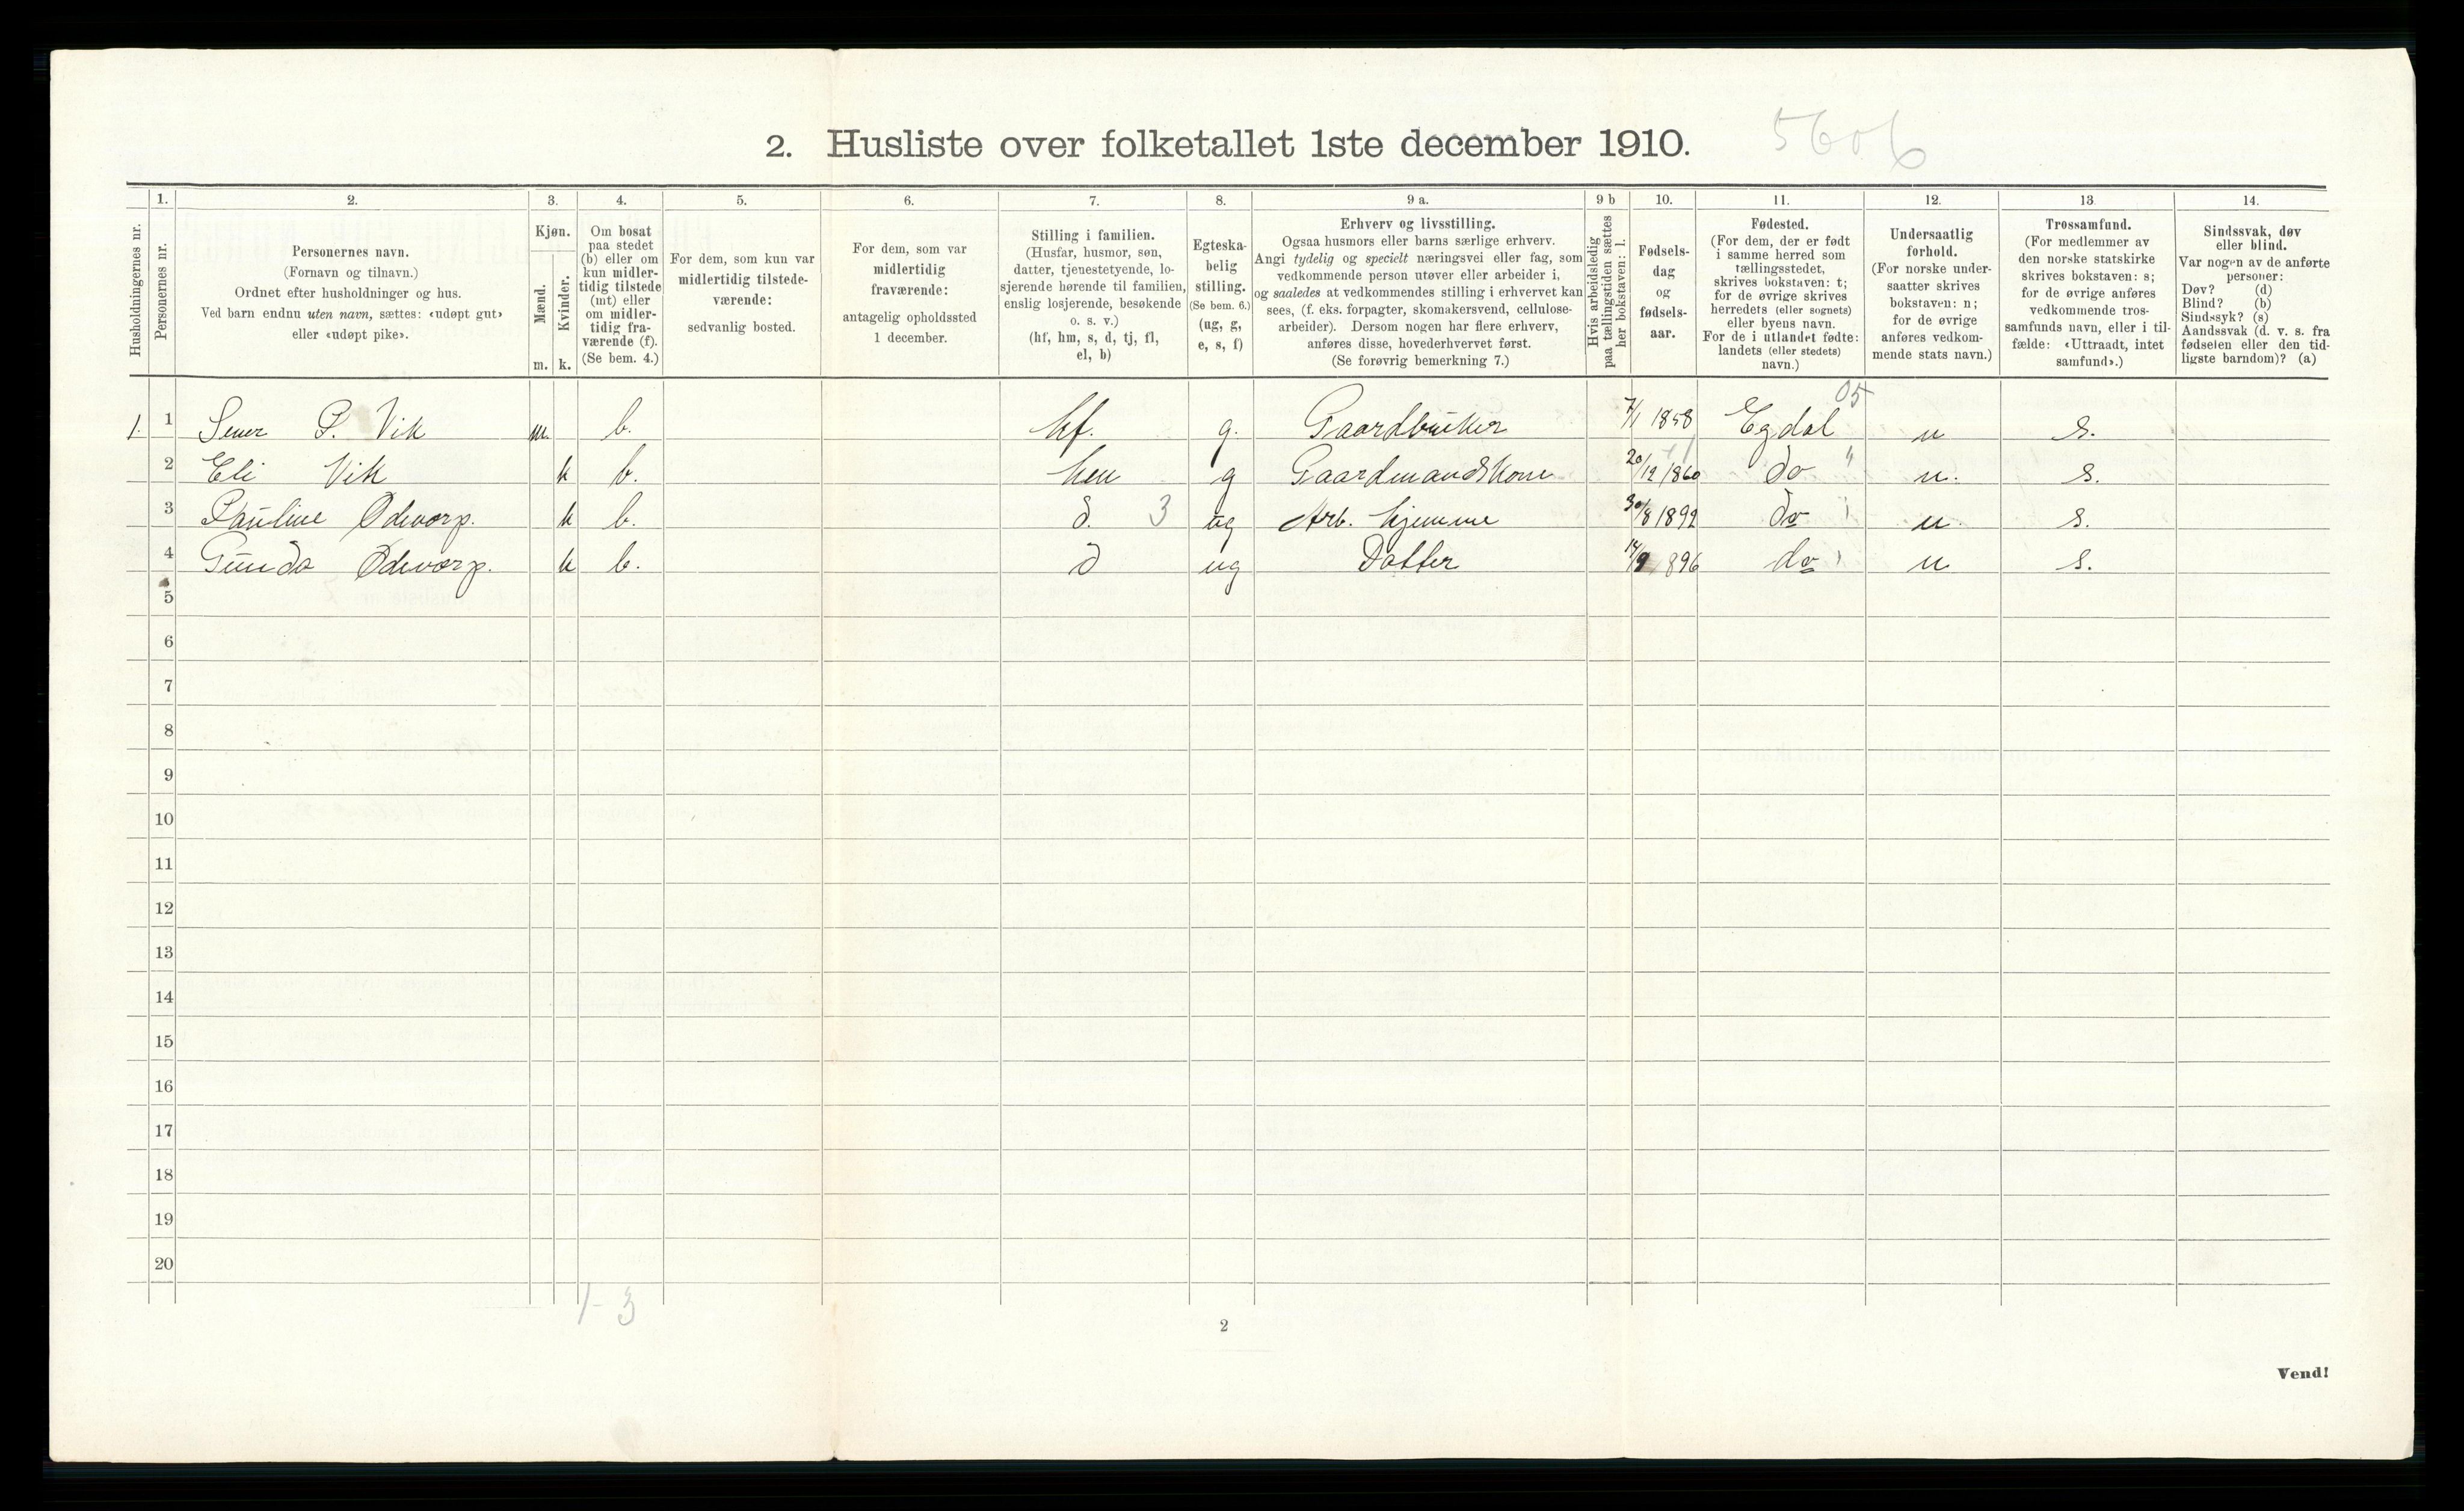 2. Husliste over folketallet 1ste december 1910. 5606
Husholdningernes nr.
1.
Personernes nr.
2.
Personernes navn.
(Fornavn og tilnavn.)
Ordnet efter husholdninger og hus.
Ved barn endnu uten navn, sættes: «udøpt gut»
eller «udøpt pike».
3.
Kjøn.
Mænd.
m.
Kvinder.
k.
4.
Om bosat
paa stedet
(b) eller om
kun midler-
tidig tilstede
(mt) eller
om midler-
tidig fra-
værende (f).
(Se bem. 4.)
5.
For dem, som kun var
midlertidig tilstede-
værende:
sedvanlig bosted.
6.
For dem, som var
midlertidig
fraværende:
antagelig opholdssted
1 december.
7.
Stilling i familien.
(Husfar, husmor, søn,
datter, tjenestetyende, lo-
sjerende hørende til familien,
enslig losjerende, besøkende
o. s. v.)
(hf, hm, s, d, tj, fl,
el, b)
8.
Egteska-
belig
stilling.
(Se bem. 6.)
(ug, g,
e, s, f)
9 a.
Erhverv og livsstilling.
Ogsaa husmors eller barns særlige erhverv.
Angi tydelig og specielt næringsvei eller fag, som
vedkommende person utøver eller arbeider i,
og saaledes at vedkommendes stilling i erhvervet kan
sees, (f. eks. forpagter, skomakersvend, cellulose-
arbeider). Dersom nogen har flere erhverv,
anføres disse, hovederhvervet først.
(Se forøvrig bemerkning 7.)
9 b
Hvis arbeidsledig
paa tællingstiden sættes
her bokstaven: l.
10.
Fødsels-
dag
og
fødsels-
aar.
11.
Fødested.
(For dem, der er født
i samme herred som
tællingsstedet,
skrives bokstaven: t;
for de øvrige skrives
herredets (eller sognets)
eller byens navn.
For de i utlandet fødte:
landets (eller stedets)
navn.)
12.
Undersaatlig
forhold.
(For norske under-
saatter skrives
bokstaven: n;
for de øvrige
anføres vedkom-
mende stats navn.)
13.
Trossamfund.
(For medlemmer av
den norske statskirke
skrives bokstaven: s;
for de øvrige anføres
vedkommende tros-
samfunds navn, eller i til-
fælde: «Uttraadt, intet
samfund».)
14.
Sindssvak, døv
eller blind.
Var nogen av de anførte
personer:
Døv? (d)
Blind? (b)
Sindssyk? (s)
Aandssvak (d. v. s. fra
fødselen eller den tid-
ligste barndom)? (a)
05
1. 1 Sever P. Vik m. b. hf. g. Gaardbruker 7/1 1858 Egdal n s.
2 Eli Vik k b. hm g Gaardmandskone 20/12 1860 do " n. s.
3 Pauline Ødevarp. k b. d. 3 ug Arb. hjemme 30/8 1892 do n s.
4 Gunda Ødevarp. k b. d ug Datter 14/9 1896 do n s.
5
6
7
8
9
10
11
12
13
14
15
16
17
18
19
20
1-3
2
Vend!